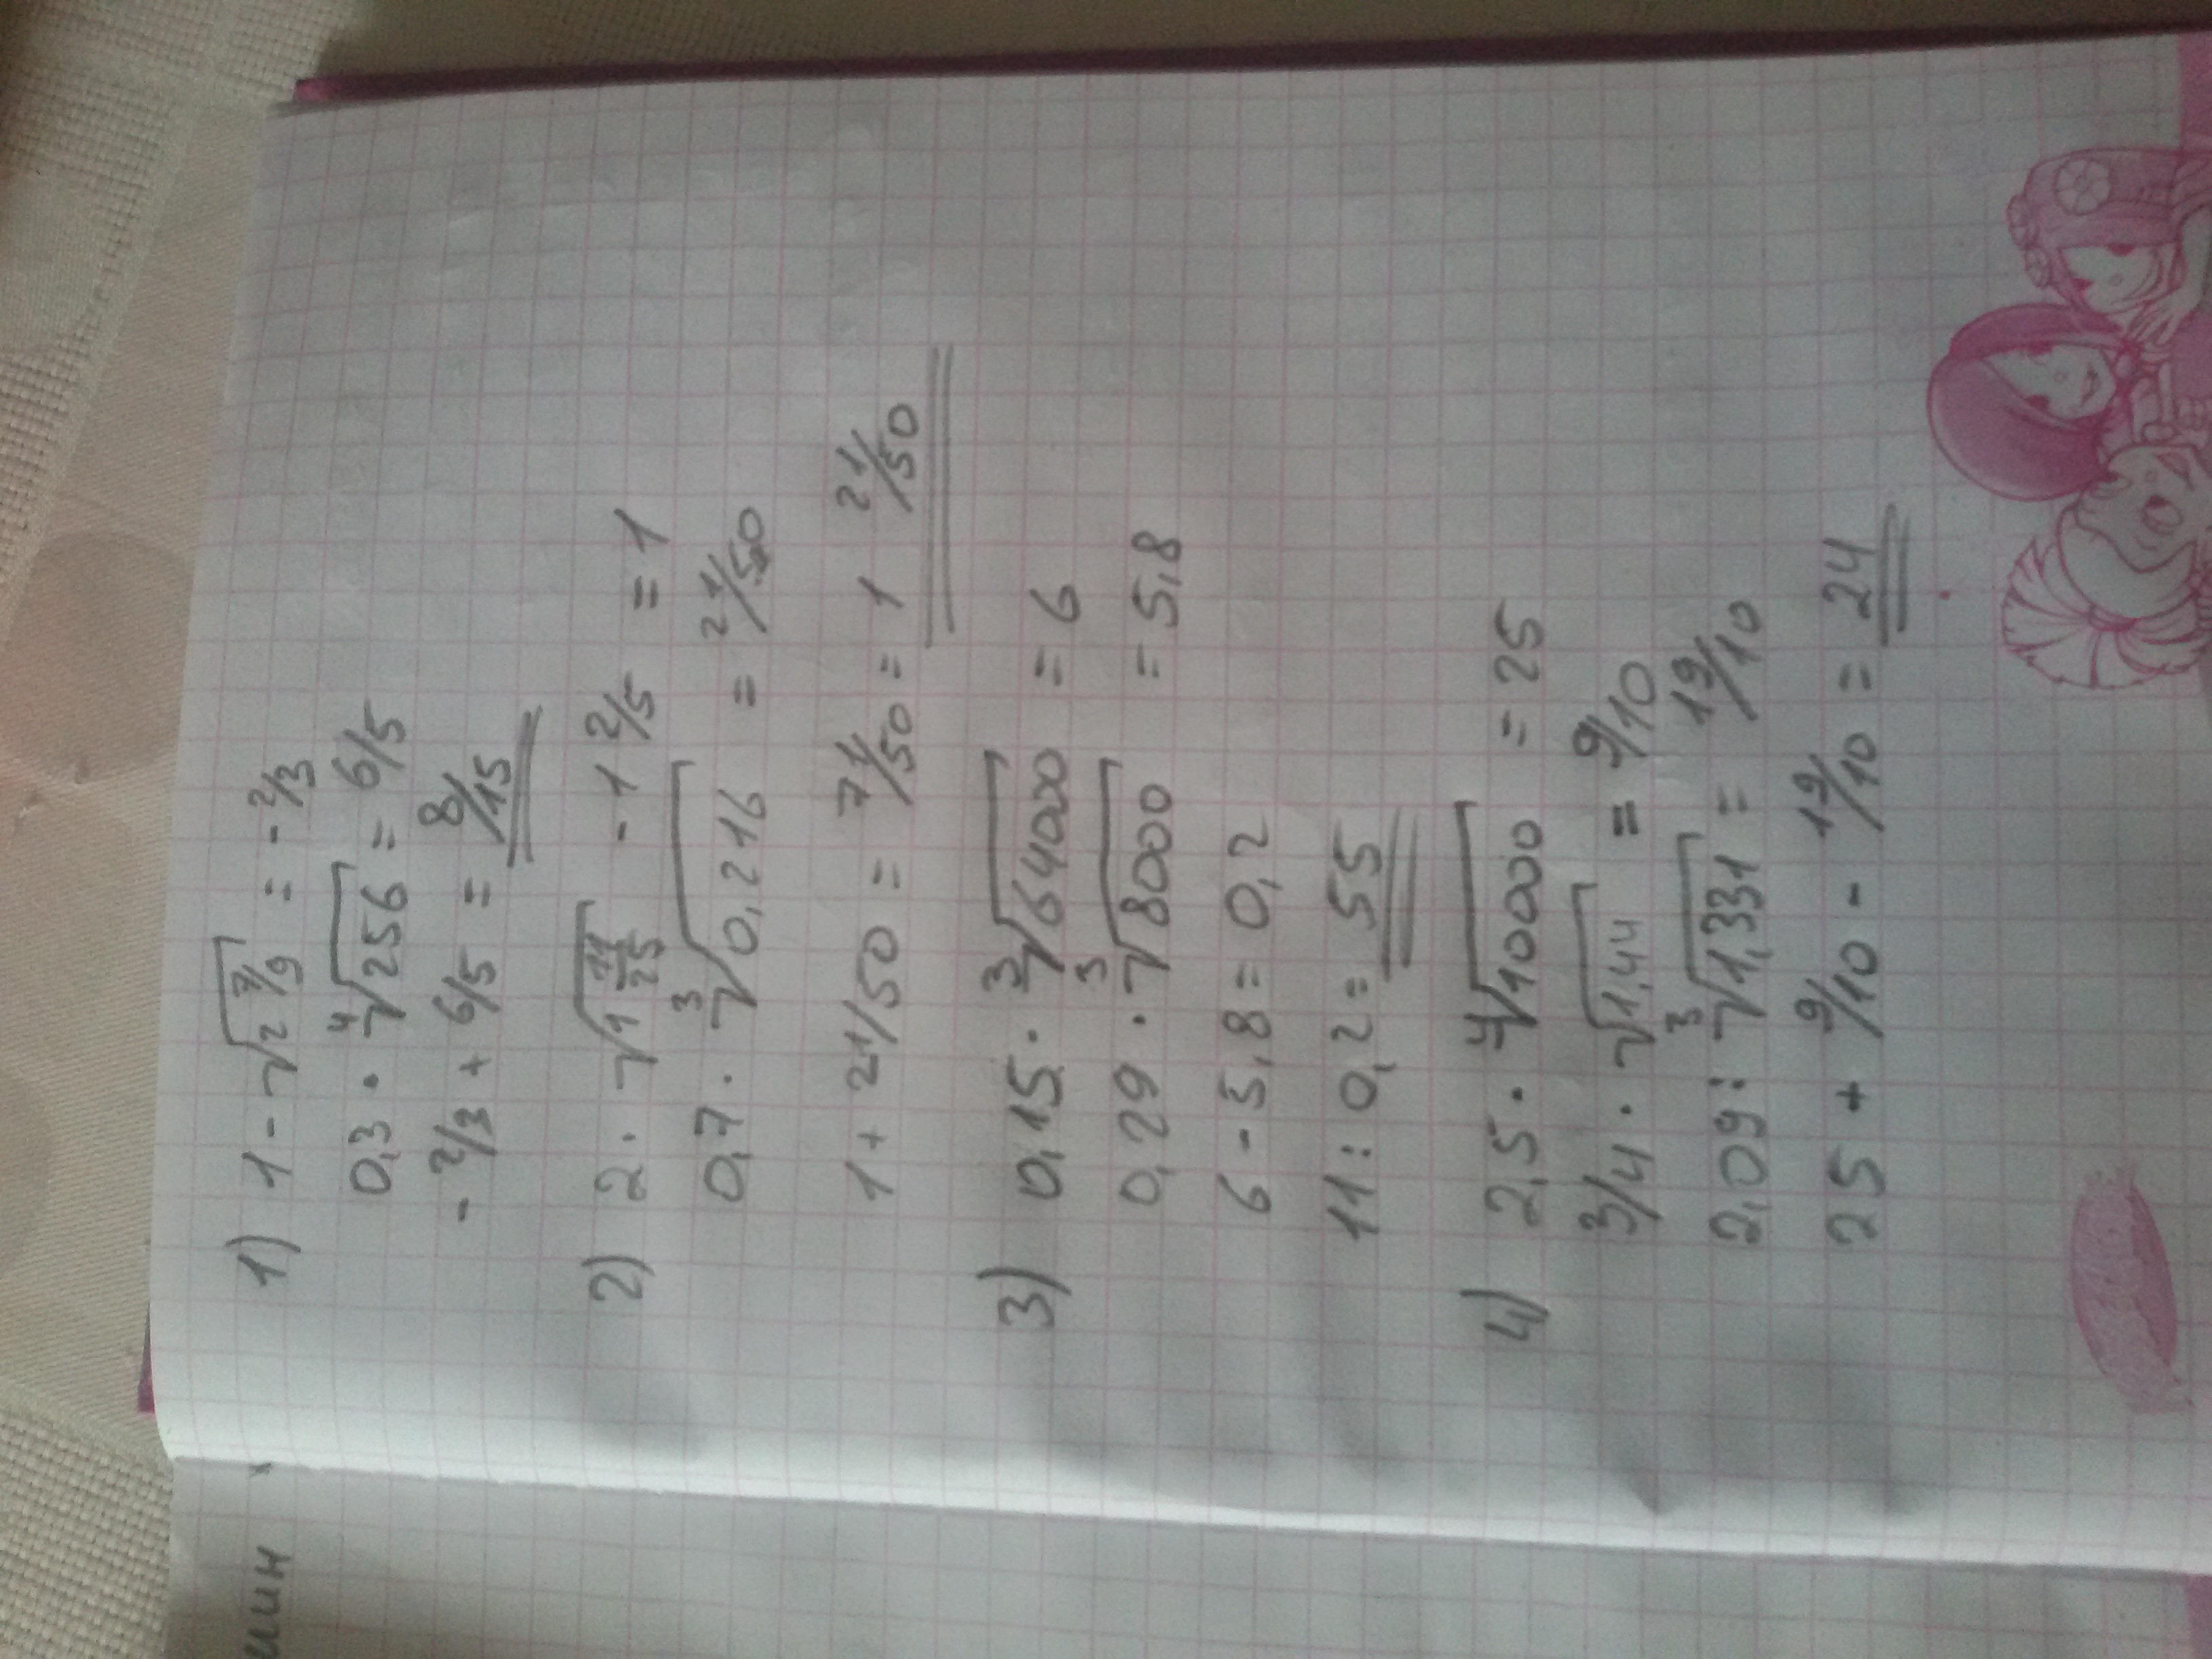 1) 1 - √2 7/9 = - 2/3
0,3 · ⁴√256 = 6/5
- 2/3 + 6/5 = 8/15
2) 2 · √1 11/25 - 1 2/5 = 1
0,7 · ³√0,216 = 21/50
1 + 21/50 = 71/50 = 1 21/50
3) 0,15 · ³√64000 = 6
0,29 · ³√8000 = 5,8
6 - 5,8 = 0,2
11 : 0,2 = 55
4) 2,5 · ⁴√10000 = 25
3/4 · √1,44 = 9/10
2,09 : ³√1,331 = 19/10
25 + 9/10 - 19/10 = 24